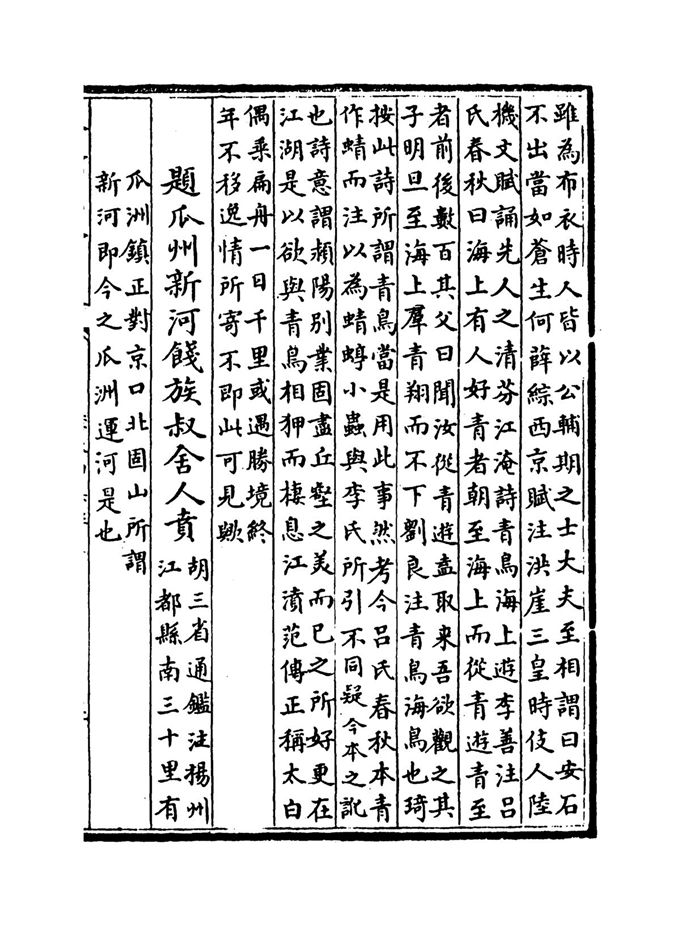 雖為布衣時人皆以公輔期之士大夫至相謂曰安石
不出當如蒼生何薛綜西京賦注洪崖三皇時伎人陸
機文賦誦先人之清芬江淹詩青鳥海上遊李善注吕
氏春秋曰海上有人好青者朝至海上而從青遊青至
者前後數百其父曰聞汝從青遊盍取来吾欲觀之其
子明旦至海上羣青翔而不下劉良注青鳥海鳥也琦
按此詩所謂青鳥當是用此事然考今吕氏春秋本青
作蜻而注以為蜻蜳小蟲與李氏所引不同疑今本之訛
也詩意謂潁陽别業固盡丘壑之美而已之所好更在
江湖是以欲與青鳥相狎而棲息江濆范傳正稱太白
偶乘扁舟一日千里或遇勝境終
年不移逸情所寄不即此可見歟
題瓜州新河餞族叔舍人賁
胡三省通鑑注揚州
江都縣南三十里有
瓜洲鎮正對京口北固山所謂
新河即今之瓜洲運河是也